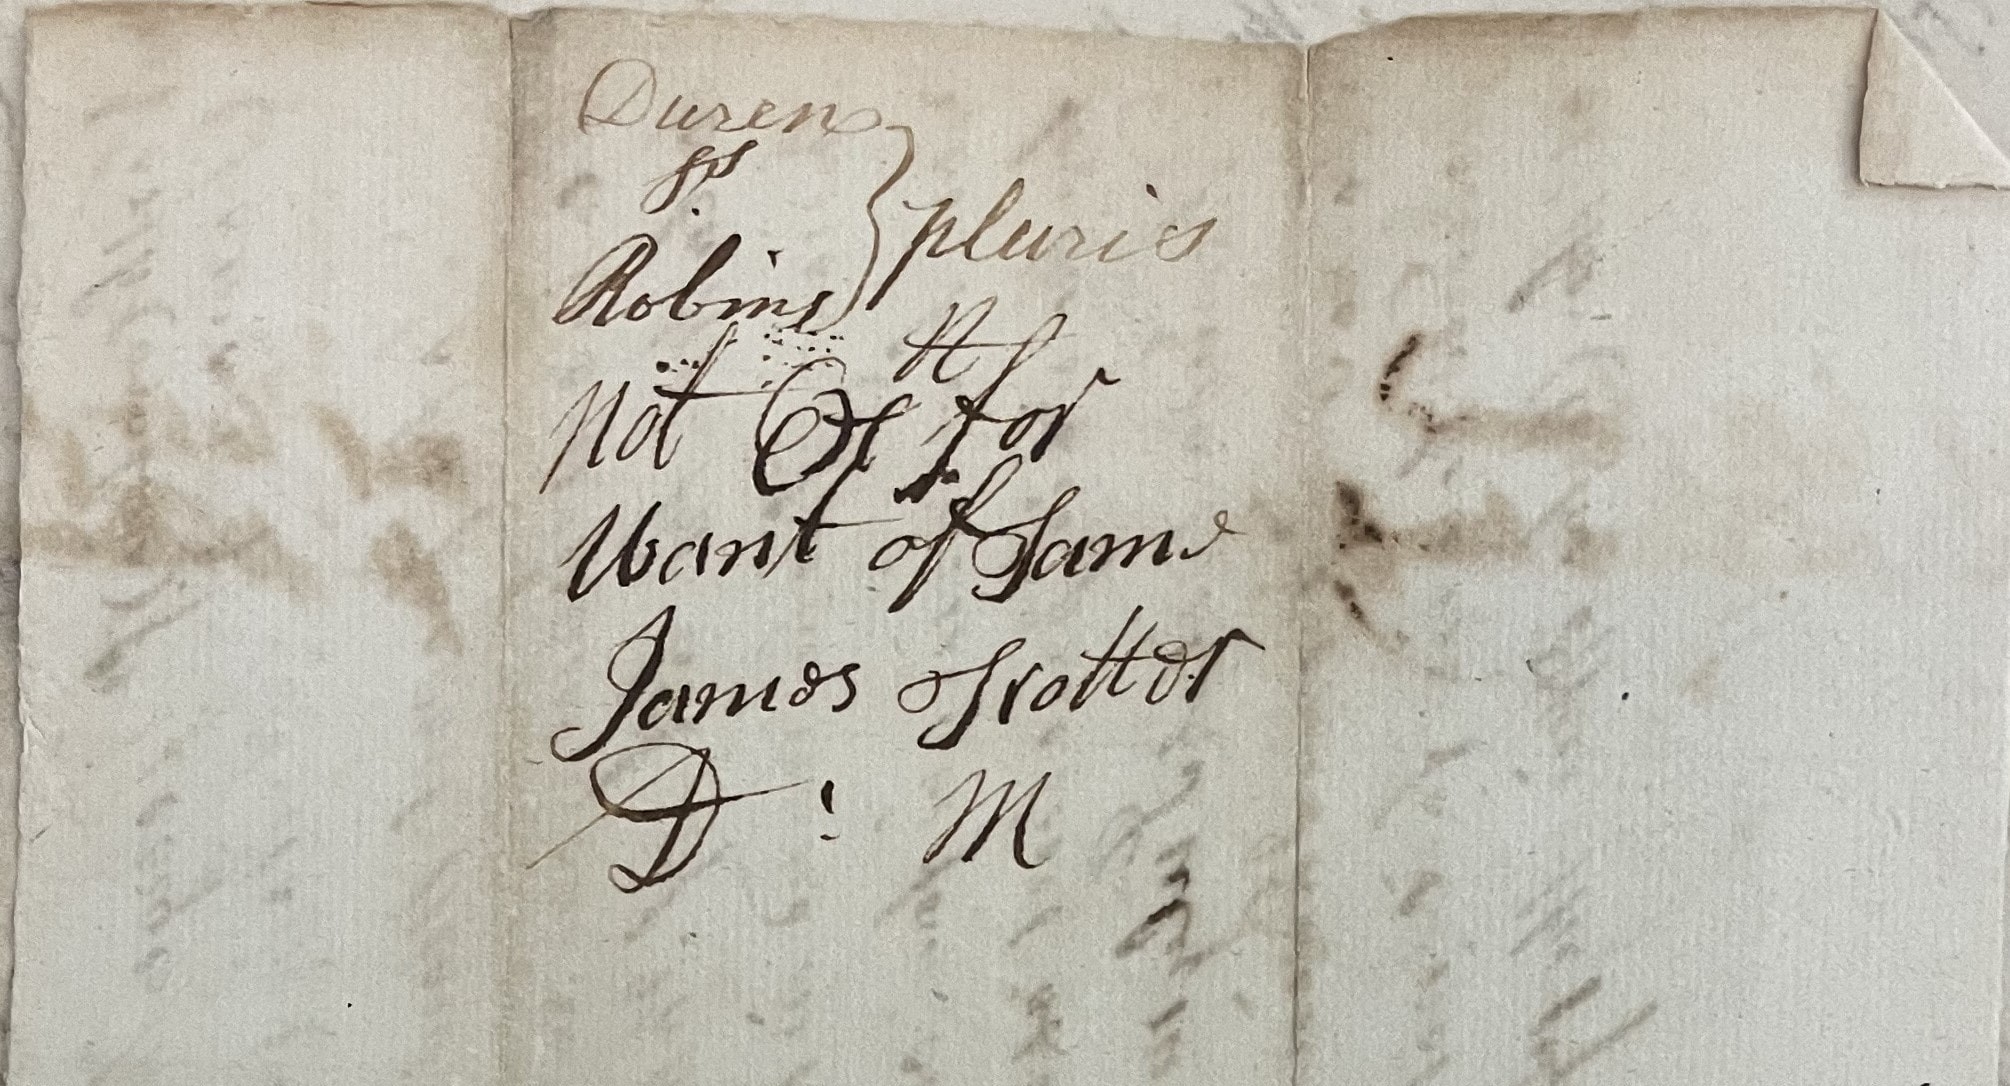 Duren
vs.
Robins } pluries
Not Ex for
Want of Same
James Trotter
D: M